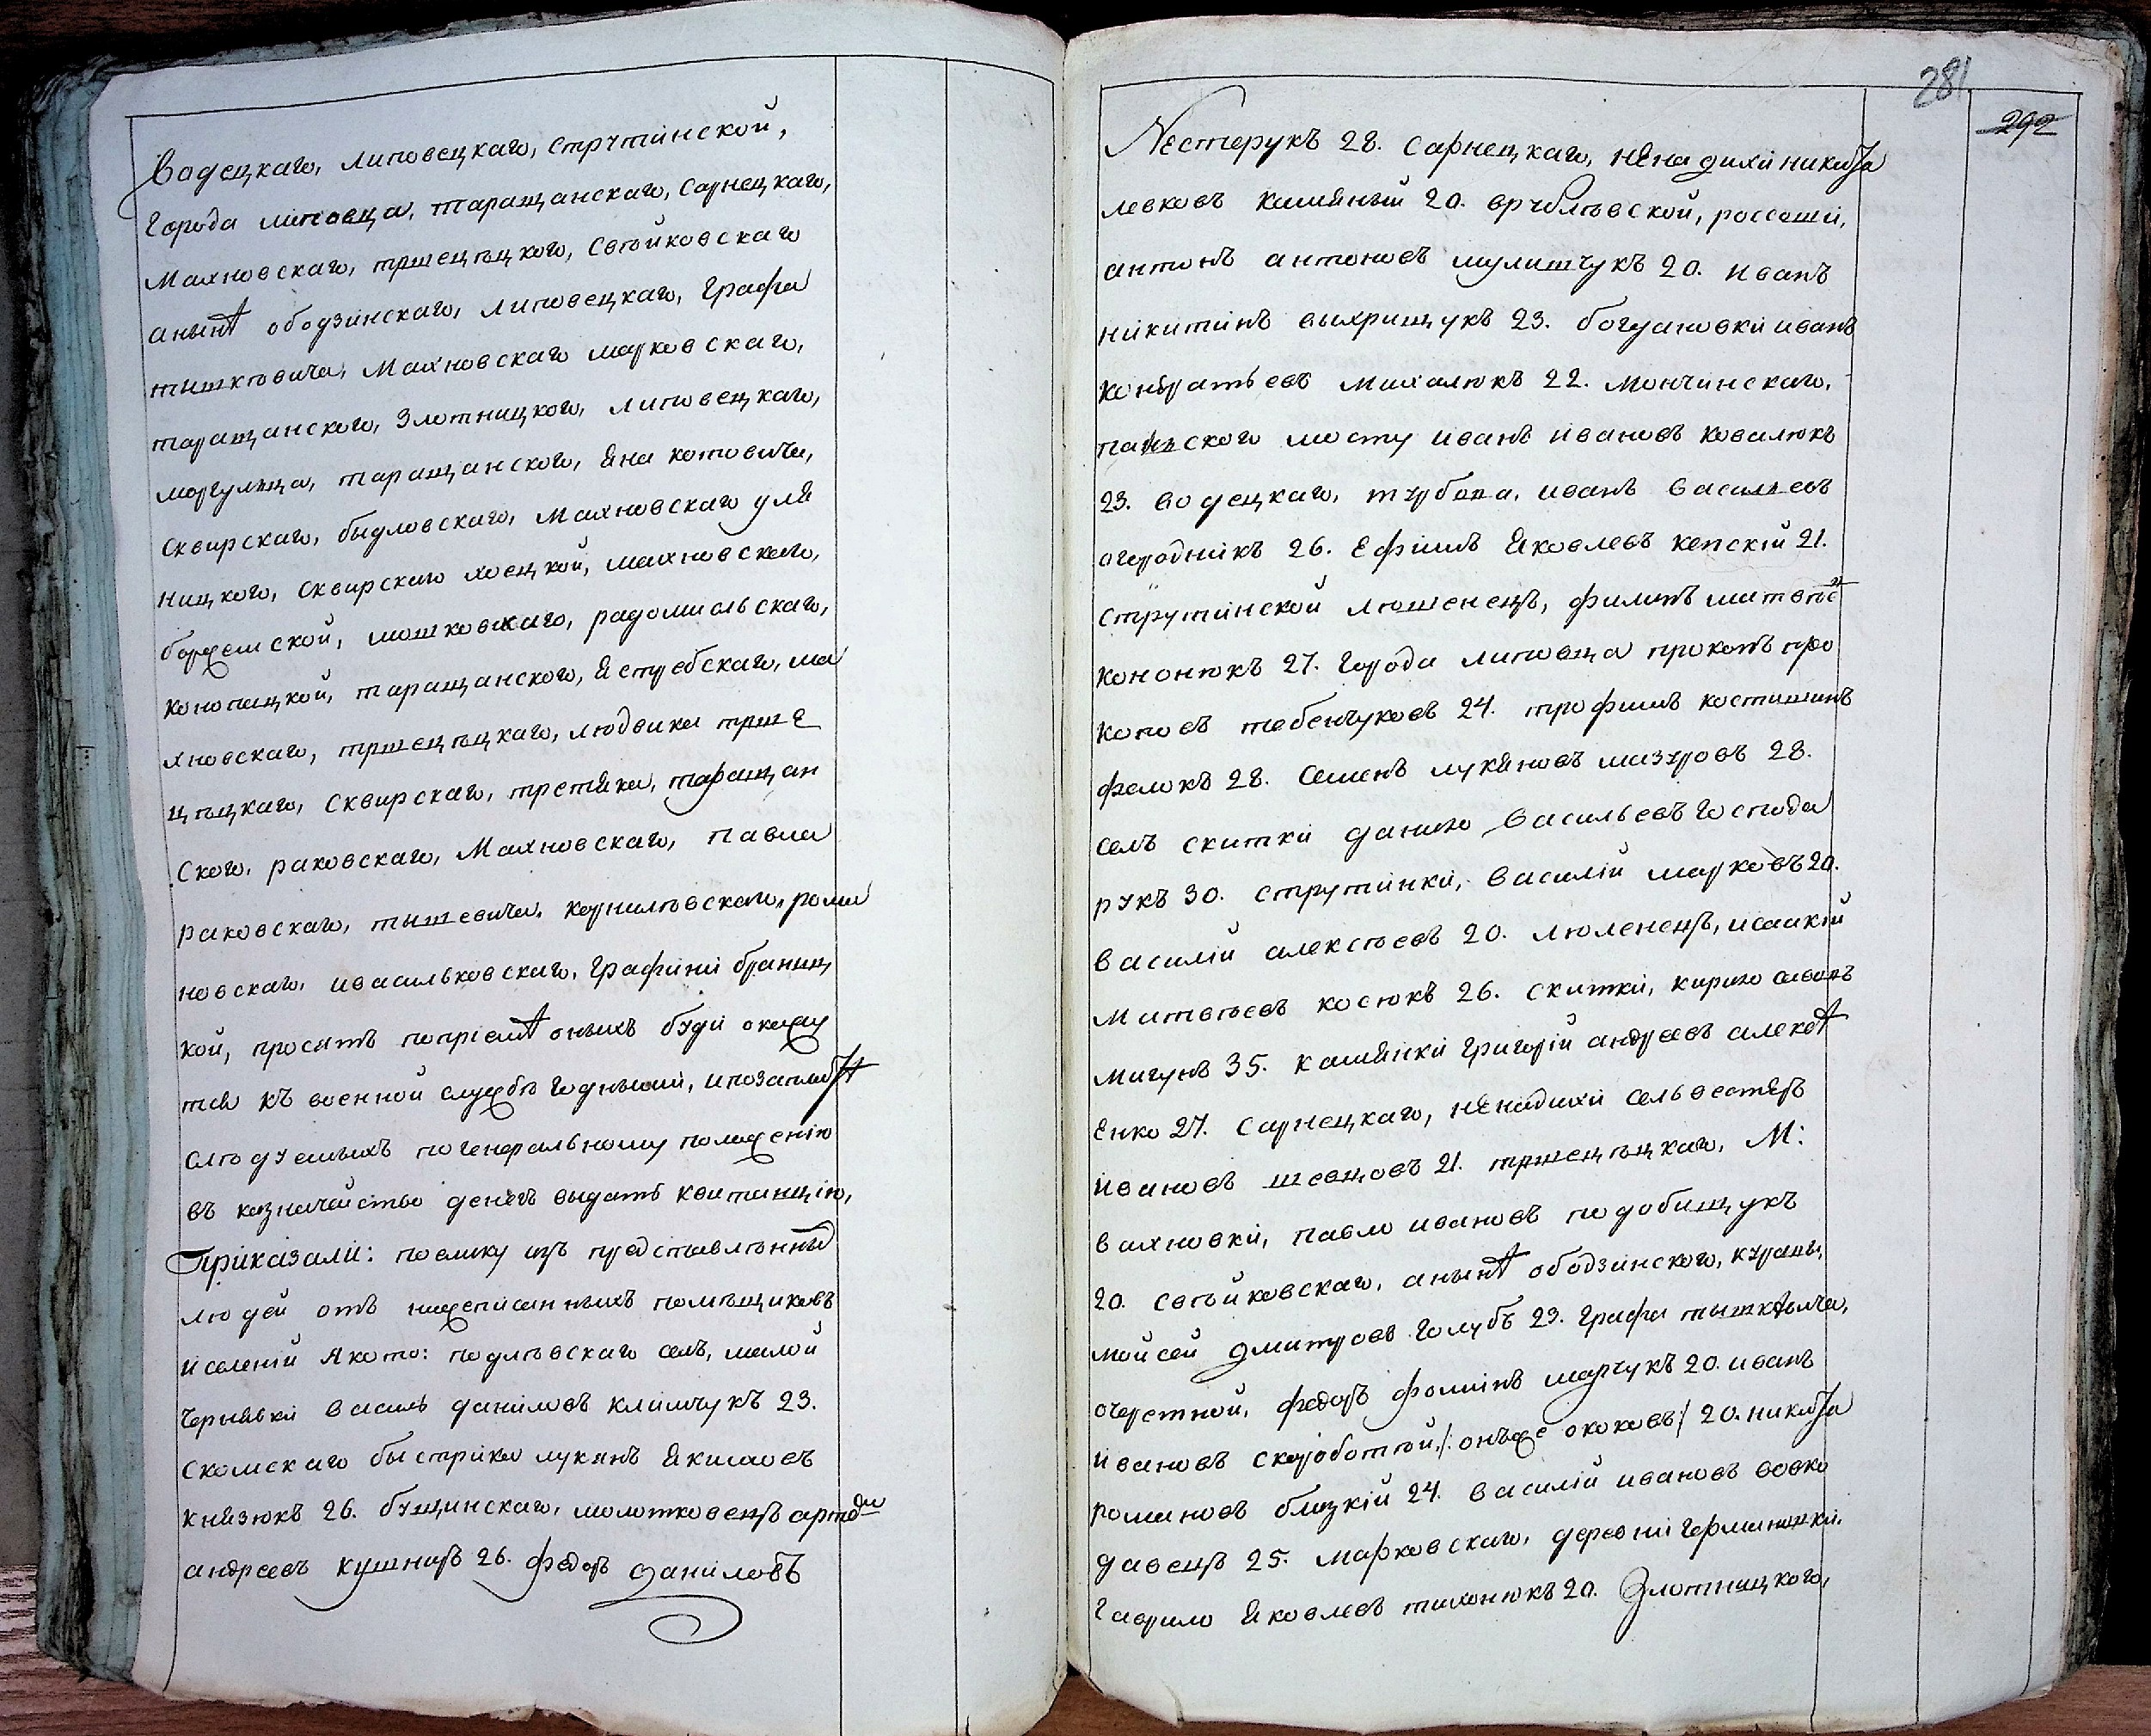 Водецкаго, Липовецкаго, Струтинской,
Города Липовца, таращанскаго, Сарнецкаго,
Махновскаго, тршецѣцкого, Свѣйковскаго
анны ободзинскаго, Липовецкаго, Графа
тышкѣвича, Махновскаго марковскаго,
таращанского, Злотницкого, Липовецкаго,
моргульца, таращанского, Яна котовича,
Сквирскаго, быдловскаго, Махновскаго уля
ницкого, Сквирскаго хоецкой, махновского,
боржемской, мошковскаго, радомисльскаго,
конопацкой, таращанского, Ястребскаго, ма
хновскаго, тршецѣцкаго, людвика трше
цѣцкаго, Сквирскаго, третяка, таращан
ского, раковскаго, Махновскаго, Павла
раковскаго, тышевича, корниловскаго, рома
новскаго, и васильковскаго, Графини браниц
кой, просятъ по пріемѣ оныхъ буди окажу
тся къ военной службѣ годными, и по заплатѣ
слѣдуемыхъ по генеральному положенію
въ казначейство денегъ выдать квитанцію,
Приказали: поелику изъ представлѣнныхъ
людей отъ нижеписанныхъ помѣщиковъ
и селеній Якото: подлѣвскаго селъ, малой
Чернявки василь даниловъ климчукъ 23.
скомскаго быстрика лукянъ Якимовъ
князюкъ 26. бущинскаго, молотковецъ артеми
андреевъ кушниръ 26. федоръ даниловъ
281
292
Нестерукъ 28. Сарнецкаго, нѣнадихи никита
левковъ камяный 20. врублѣвской, россоши,
антонъ антоновъ мулишчукъ 20. иванъ
никитинъ выхрищукъ 23. богдановки иванъ
кондратьевъ михалюкъ 22. мончинскаго,
паньского мосту иванъ ивановъ ковалюкъ
23. водецкаго, турбова, иванъ васильевъ
огородникъ 26. Ефимъ Яковлевъ кепскій 21.
Струтинской люшенецъ, филипъ матвѣевъ
кононюкъ 27. Города липовца прокопъ про
коповъ тебенчуковъ 24. трофимъ костишинъ
фелокъ 28. Семенъ лукяновъ мазуровъ 28.
селъ скитки данило васильевъ господа
рукъ 30. струтинки, василій марковъ 20.
василій алексѣевъ 20. люленецъ, исаакій
Матвѣевъ косюкъ 26. скитки, кирило
мигунъ 35. камянки григорій андреевъ алексѣ
Енко 27. Сарнецкаго, нѣнадихи сельвестеръ
ивановъ шевцовъ 21. тршецѣцкаго, М:
вахновки, павло ивановъ подобищукъ
20. свѣйковскаго, анны ободзинского, курани,
мойсей дмитровъ голубъ 23. Графа тышкѣвича,
очеретной, федоръ фоминъ марчукъ 20. иванъ
ивановъ скоробогтой /: онъже ококовъ :/ 20. никита
романовъ близкій 24. василій ивановъ вовко
давецъ 25. марковскаго, деревни германовки,
гаврило Яковлевъ тихонюкъ 20. Злотницкого,